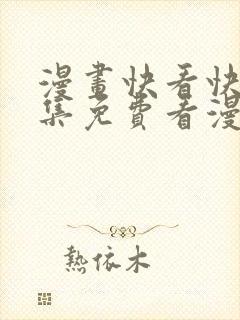 漫畫快看快
集免費看漫
熱依木